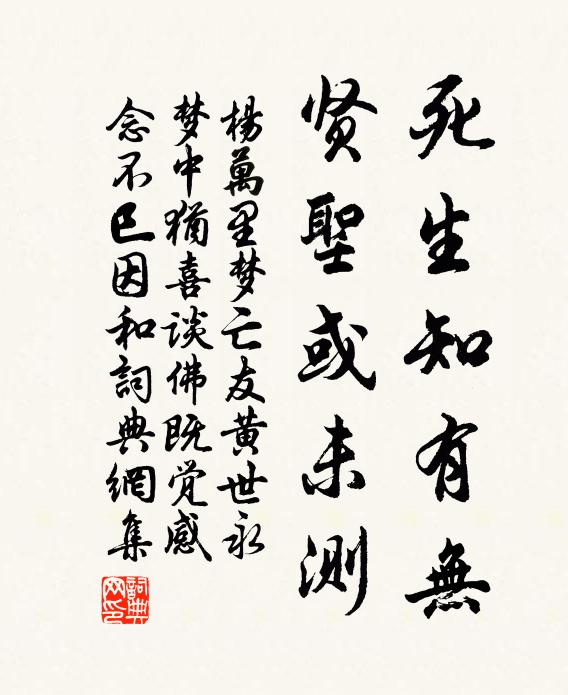 死生知有無
贤聖或未測
楊萬里梦亡友黄世永
梦中猶喜谈佛既觉感
念不已因和詞典網集
詞典网印